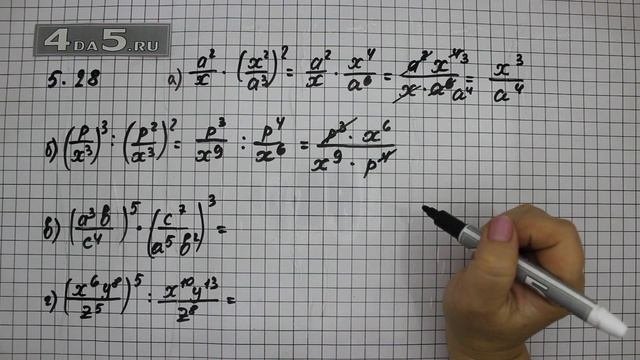 4DA5.RU
5.28 а) a²/x · (x²/a³)² = a²/x · x⁴/a⁶ = a² x⁴ ³/x · a⁶ a⁴ = x³/a⁴
б) (p/x³)³ : (p²/x³)² = p³/x⁹ : p⁴/x⁶ = p³ · x⁶/x⁹ · p⁴
в) (a³b/c⁴)⁵ · (c⁷/a⁵b²)³ =
г) (x⁶y⁸/z⁵)⁵ : x¹⁰y¹³/z⁸ =